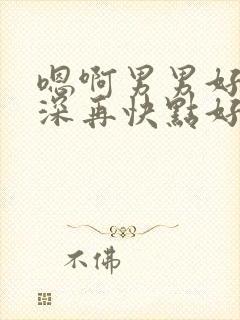 嗯啊男男好
深再快點好
不佛